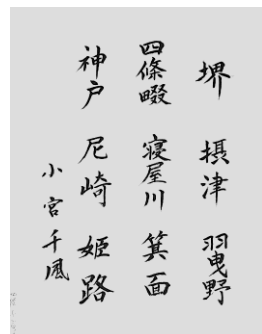 堺 摂津 羽曳野
四條畷 寝屋川 箕面
神戸 尼崎 姫路
小宮千凮